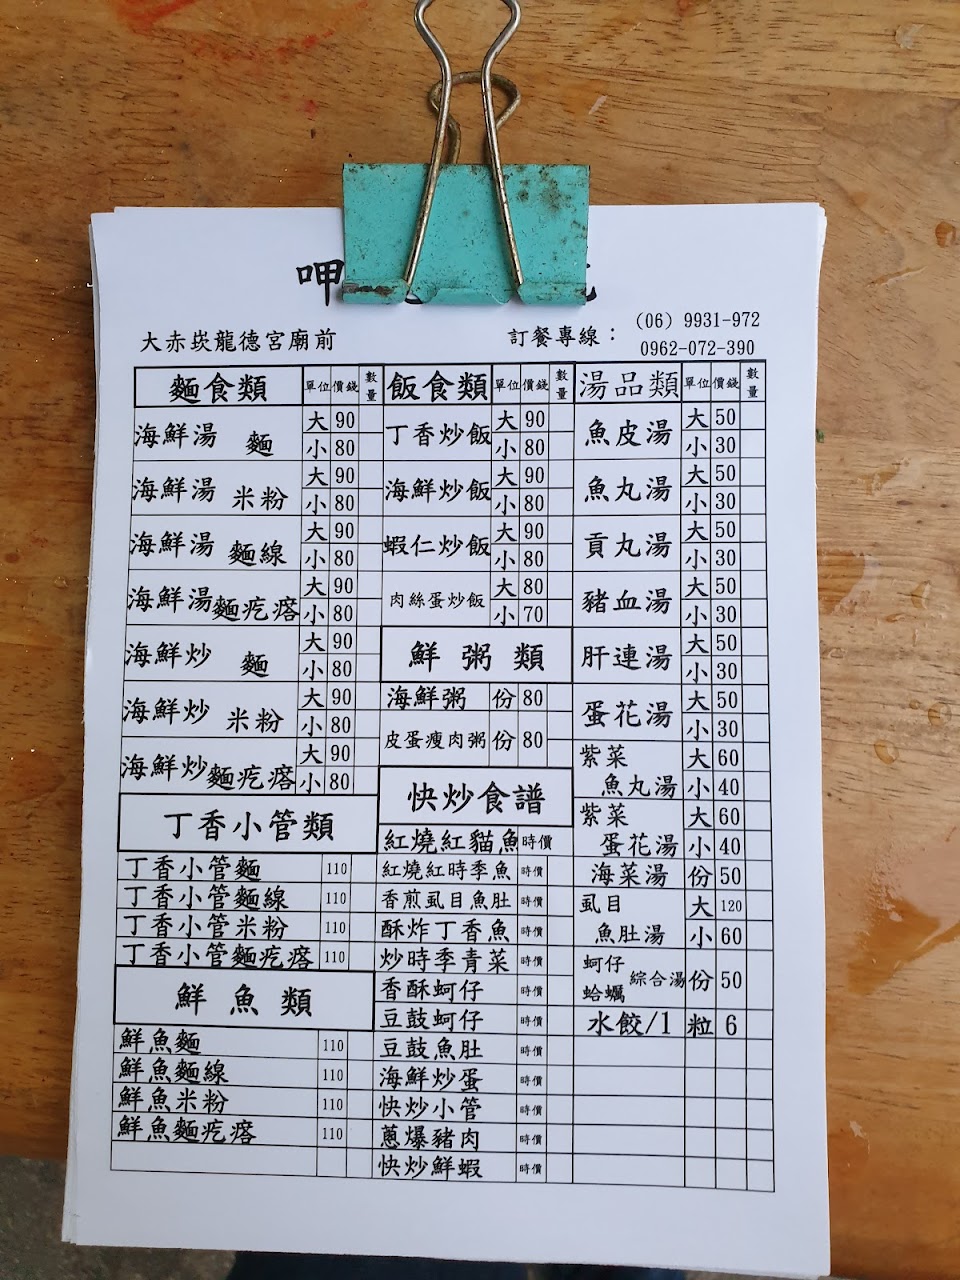 呷
大赤崁龍德宮廟前
訂餐專線：
(06) 9931-972
0962-072-390
麵食類 單位 價錢 數量
海鮮湯 麵 大 90
小 80
海鮮湯 米粉 大 90
小 80
海鮮湯 麵線 大 90
小 80
海鮮湯 麵疙瘩 大 90
小 80
海鮮炒 麵 大 90
小 80
海鮮炒 米粉 大 90
小 80
海鮮炒 麵疙瘩 大 90
小 80
丁香小管類
丁香小管麵 110
丁香小管麵線 110
丁香小管米粉 110
丁香小管麵疙瘩 110
鮮魚類
鮮魚麵 110
鮮魚麵線 110
鮮魚米粉 110
鮮魚麵疙瘩 110
飯食類 單位 價錢 數量
丁香炒飯 大 90
小 80
海鮮炒飯 大 90
小 80
蝦仁炒飯 大 90
小 80
肉絲蛋炒飯 大 80
小 70
鮮粥類
海鮮粥 份 80
皮蛋瘦肉粥 份 80
快炒食譜
紅燒紅貓魚 時價
紅燒紅時季魚 時價
香煎虱目魚肚 時價
酥炸丁香魚 時價
炒時季青菜 時價
香酥蚵仔 時價
豆鼓蚵仔 時價
豆鼓魚肚 時價
海鮮炒蛋 時價
快炒小管 時價
蔥爆豬肉 時價
快炒鮮蝦 時價
湯品類 單位 價錢 數量
魚皮湯 大 50
小 30
魚丸湯 大 50
小 30
貢丸湯 大 50
小 30
豬血湯 大 50
小 30
肝連湯 大 50
小 30
蛋花湯 大 50
小 30
紫菜 大 60
魚丸湯 小 40
紫菜 大 60
蛋花湯 小 40
海菜湯 份 50
虱目 大 120
魚肚湯 小 60
蚵仔
蛤蠣 綜合湯 份 50
水餃/1 粒 6